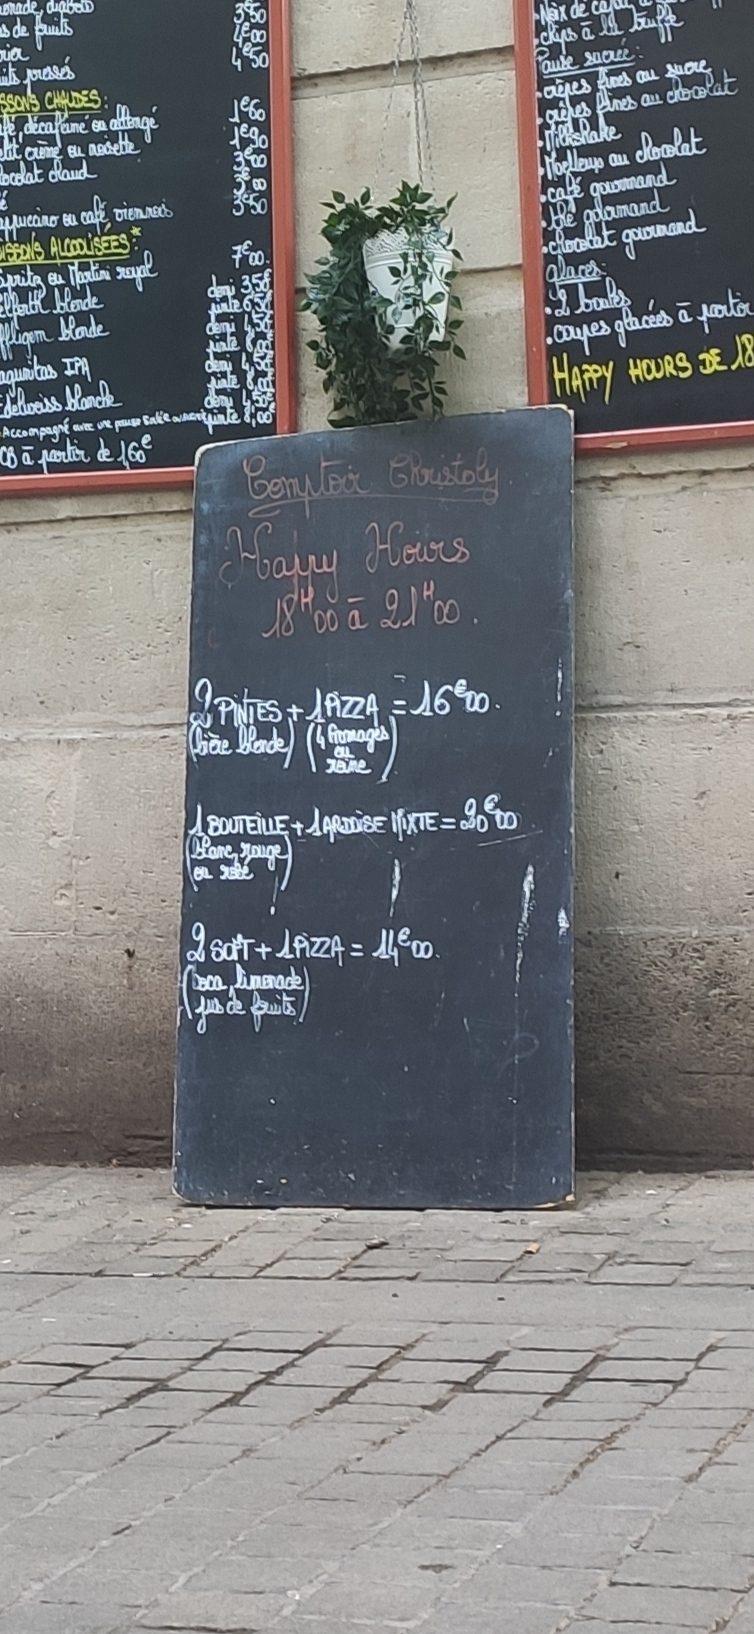 diabolo 3€50
de fruits 4€00
4€50
pressés
CHAUDES:
décaféiné ou allongé 1€60
crème ou noisette 1€90
chocolat chaud 3€00
cappuccino ou café viennois 3€50
BOISSONS ALCOOLISÉES*
Spritz ou Martini royal 7€00
blonde demi 3,50€
pinte 6,50€
Affligem blonde demi 4,50€
pinte 8,00€
Lagunitas IPA demi 4,50€
pinte 8,00€
Edelweiss blanche demi 4,50€
pinte 8,00€
Accompagné avec une
CB à partir de 1,60€
Noix de cajou
chips à la truffe
Pause sucrée:
• crêpes fines au sucre
• crêpes fines au chocolat
• Milkshake
• Moelleux au chocolat
• café gourmand
• thé gourmand
• chocolat gourmand
glaces:
• 2 boules
• coupes glacées à partir
HAPPY HOURS DE 18
Comptoir Christoly
Happy Hours
18H00 à 21H00.
2 PINTES + 1 PIZZA = 16€00.
(bière blonde) (4 fromages
ou
reine)
1 BOUTEILLE + 1 ARDOISE MIXTE = 20€00
(blanc, rouge
ou rosé)
2 SOFT + 1 PIZZA = 14€00.
(coca, limonade
jus de fruits)